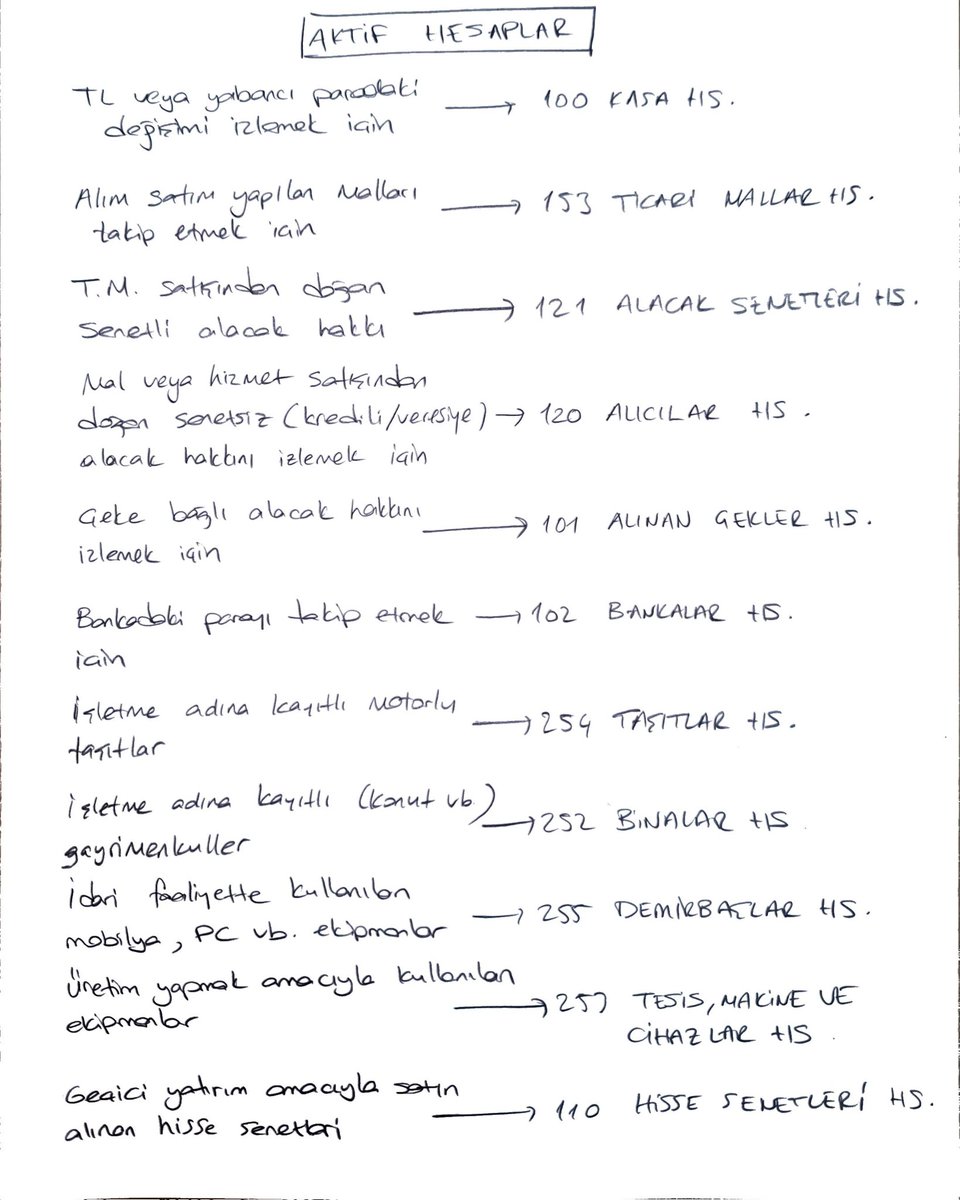 AKTİF HESAPLAR
TL veya yabancı paradaki → 100 KASA HS.
değişimi izlemek için
Alım satım yapılan malları → 153 TİCARİ MALLAR HS.
takip etmek için
T.M. satışından doğan → 121 ALACAK SENETLERİ HS.
senetli alacak hakkı
Mal veya hizmet satışından
doğan senetsiz (kredili/veresiye) → 120 ALICILAR HS.
alacak hakkını izlemek için
Çeke bağlı alacak hakkını → 101 ALINAN ÇEKLER HS.
izlemek için
Bankadaki parayı takip etmek → 102 BANKALAR HS.
için
İşletme adına kayıtlı motorlu → 254 TAŞITLAR HS.
taşıtlar
İşletme adına kayıtlı (konut vb.) → 252 BİNALAR HS
gayrimenkuller
İdari faaliyette kullanılan → 255 DEMİRBAŞLAR HS.
mobilya, PC vb. ekipmanlar
Üretim yapmak amacıyla kullanılan → 253 TESİS, MAKİNE VE
ekipmanlar CİHAZLAR HS.
Geçici yatırım amacıyla satın → 110 HİSSE SENETLERİ HS.
alınan hisse senetleri